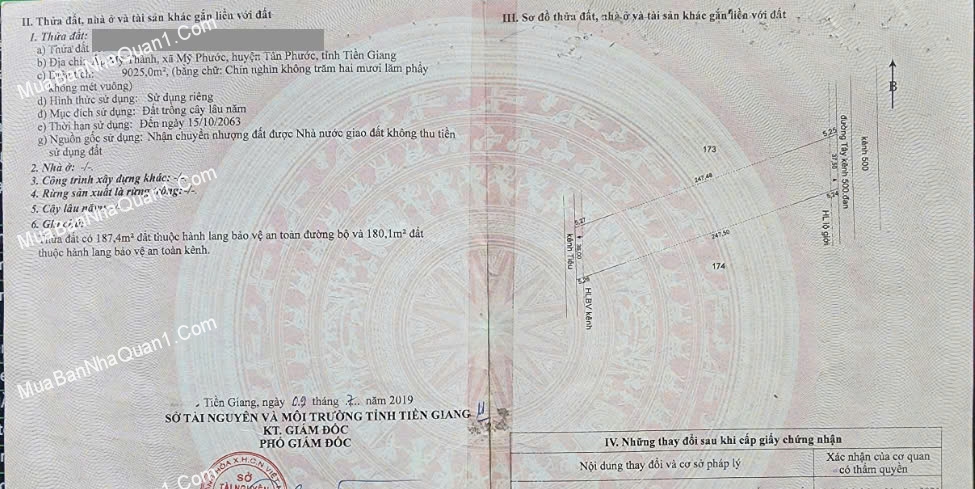 II. Thửa đất, nhà ở và tài sản khác gắn liền với đất
1. Thửa đất:
a) Thửa đất
b) Địa chỉ: Mỹ Thành, xã Mỹ Phước, huyện Tân Phước, tỉnh Tiền Giang
c) 9025,0m², (bằng chữ: Chín nghìn không trăm hai mươi lăm phẩy
không mét vuông)
d) Hình thức sử dụng: Sử dụng riêng
đ) Mục đích sử dụng: Đất trồng cây lâu năm
e) Thời hạn sử dụng: Đến ngày 15/10/2063
g) Nguồn gốc sử dụng: Nhận chuyển nhượng đất được Nhà nước giao đất không thu tiền
sử dụng đất
2. Nhà ở: -/-.
3. Công trình xây dựng khác: -/-
4. Rừng sản xuất là rừng trồng: -/-.
5. Cây lâu năm:
6. Ghi chú:
Thửa đất có 187,4m² đất thuộc hành lang bảo vệ an toàn đường bộ và 180,1m² đất
thuộc hành lang bảo vệ an toàn kênh.
Tiền Giang, ngày 09 tháng 7 năm 2019
SỞ TÀI NGUYÊN VÀ MÔI TRƯỜNG TỈNH TIỀN GIANG
KT. GIÁM ĐỐC
PHÓ GIÁM ĐỐC
HÒA X.H.C.N VIỆT
SỞ
TÀI NGUYÊN
III. Sơ đồ thửa đất, nhà ở và tài sản khác gắn liền với đất
B
173
174
247,48
247,50
5,25
37,50
5,24
5,27
36,00
5,26
kênh Tiêu
HLBV kênh
đường Tây kênh 500,đan
HL lộ giới
kênh 500
IV. Những thay đổi sau khi cấp giấy chứng nhận
Nội dung thay đổi và cơ sở pháp lý
Xác nhận của cơ quan
có thẩm quyền
MuaBanNhaQuan1.Com
MuaBanNhaQuan1.Com
MuaBanNhaQuan1.Com
1.Com